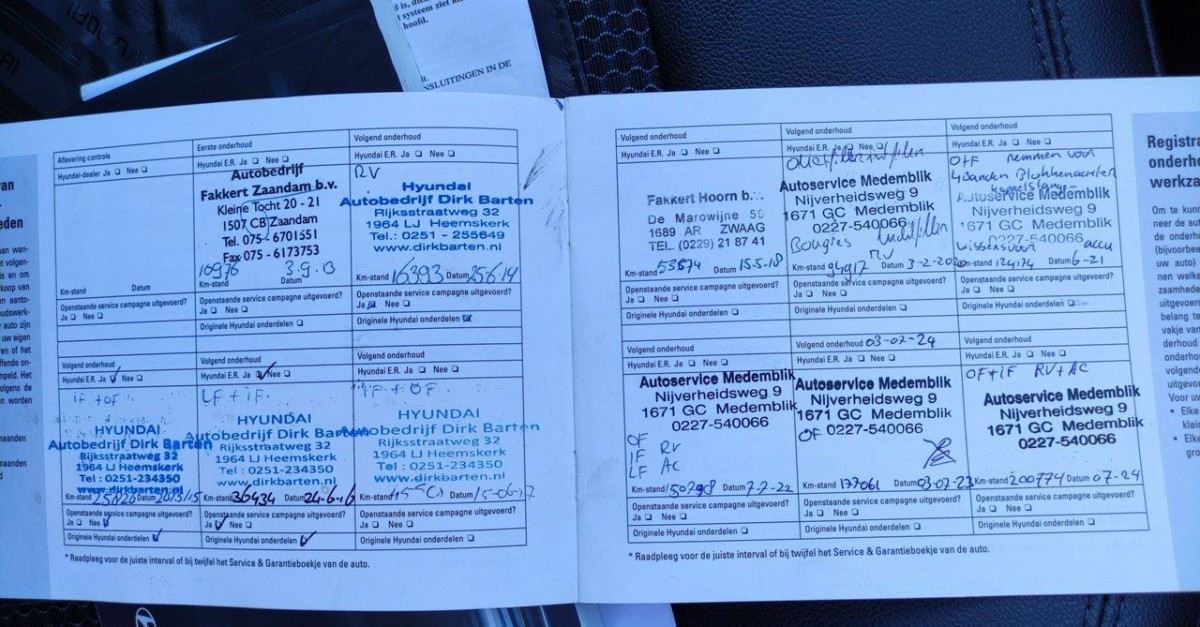 is, die
systeem ziet k
hoofd.
it.
NSLUITINGEN IN DE
van
eden
Aflevering controle
Hyundai-dealer Ja ☐ Nee ☐
Km-stand Datum
Openstaande service campagne uitgevoerd?
Ja ☐ Nee ☐
Eerste onderhoud
Hyundai E.R. Ja ☐ Nee ☐
Autobedrijf
Fakkert Zaandam b.v.
Kleine Tocht 20 - 21
1507 CB Zaandam
Tel. 075 - 6701551
Fax 075 - 6173753
10976 3.9.13
Km-stand Datum
Openstaande service campagne uitgevoerd?
Ja ☐ Nee ☐
Originele Hyundai onderdelen ☐
Volgend onderhoud
Hyundai E.R. Ja ☐ Nee ☐
RV
Hyundai
Autobedrijf Dirk Barten
Rijksstraatweg 32
1964 LJ Heemskerk
Tel.: 0251 - 255649
www.dirkbarten.nl
Km-stand 16393 Datum 25.6.14
Openstaande service campagne uitgevoerd?
Ja ☐ Nee ☐
Originele Hyundai onderdelen ☐
Volgend onderhoud
Hyundai E.R. Ja ☐ Nee ☐
iF + oF
HYUNDAI
Autobedrijf Dirk Barten
Rijksstraatweg 32
1964 LJ Heemskerk
Tel : 0251-234350
www.dirkbarten.nl
Km-stand Datum
Openstaande service campagne uitgevoerd?
Ja ☐ Nee ☐
Originele Hyundai onderdelen ☐
Volgend onderhoud
Hyundai E.R. Ja ☐ Nee ☐
LF + iF.
HYUNDAI
Autobedrijf Dirk Barten
Rijksstraatweg 32
1964 LJ Heemskerk
Tel : 0251-234350
www.dirkbarten.nl
Km-stand 36434 Datum 24-6-16
Openstaande service campagne uitgevoerd?
Ja ☐ Nee ☐
Originele Hyundai onderdelen ☐
Volgend onderhoud
Hyundai E.R. Ja ☐ Nee ☐
iF + OF
HYUNDAI
Autobedrijf Dirk Barten
Rijksstraatweg 32
1964 LJ Heemskerk
Tel : 0251-234350
www.dirkbarten.nl
Km-stand Datum 15-06-17
Openstaande service campagne uitgevoerd?
Ja ☐ Nee ☐
Originele Hyundai onderdelen ☐
* Raadpleeg voor de juiste interval of bij twijfel het Service & Garantieboekje van de auto.
Volgend onderhoud
Hyundai E.R. Ja ☐ Nee ☐
Fakkert Hoorn b.
De Marowijne 59
1689 AR ZWAAG
TEL. (0229) 21 87 41
Km-stand 53574 Datum 15-5-18
Openstaande service campagne uitgevoerd?
Ja ☐ Nee ☐
Originele Hyundai onderdelen ☐
Volgend onderhoud
Hyundai E.R. Ja ☐ Nee ☐
Autoservice Medemblik
Nijverheidsweg 9
1671 GC Medemblik
0227-540066
Bougies
RV
Km-stand 94917 Datum 3-2-2020
Openstaande service campagne uitgevoerd?
Ja ☐ Nee ☐
Originele Hyundai onderdelen ☐
Volgend onderhoud
Hyundai E.R. Ja ☐ Nee ☐
remmen voor
Autoservice Medemblik
Nijverheidsweg 9
1671 GC Medemblik
0227-540066
accu
Km-stand 124174 Datum 6-21
Openstaande service campagne uitgevoerd?
Ja ☐ Nee ☐
Originele Hyundai onderdelen ☐
Volgend onderhoud
Hyundai E.R. Ja ☐ Nee ☐
Autoservice Medemblik
Nijverheidsweg 9
1671 GC Medemblik
0227-540066
OF
IF RV
LF AC
Km-stand 150798 Datum 7-7-22
Openstaande service campagne uitgevoerd?
Ja ☐ Nee ☐
Originele Hyundai onderdelen ☐
Volgend onderhoud 03-02-24
Hyundai E.R. Ja ☐ Nee ☐
Autoservice Medemblik
Nijverheidsweg 9
1671 GC Medemblik
OF 0227-540066
Km-stand 177061 Datum 03-02-23
Openstaande service campagne uitgevoerd?
Ja ☐ Nee ☐
Originele Hyundai onderdelen ☐
Volgend onderhoud
Hyundai E.R. Ja ☐ Nee ☐
OF + IF RV + AC
Autoservice Medemblik
Nijverheidsweg 9
1671 GC Medemblik
0227-540066
Km-stand 200774 Datum 07-24
Openstaande service campagne uitgevoerd?
Ja ☐ Nee ☐
Originele Hyundai onderdelen ☐
* Raadpleeg voor de juiste interval of bij twijfel het Service & Garantieboekje van de auto.
Registra
onderho
werkza
Om te kunn
neer de auto
de onderho
(bijvoorbee
uw auto)
nen welke
zaamhede
uitgevoerd
belang te
vakje van
derhoud
onderhoud
volgende
uitgevoer
Voor uw
• Elke
klein
• Elke
gro